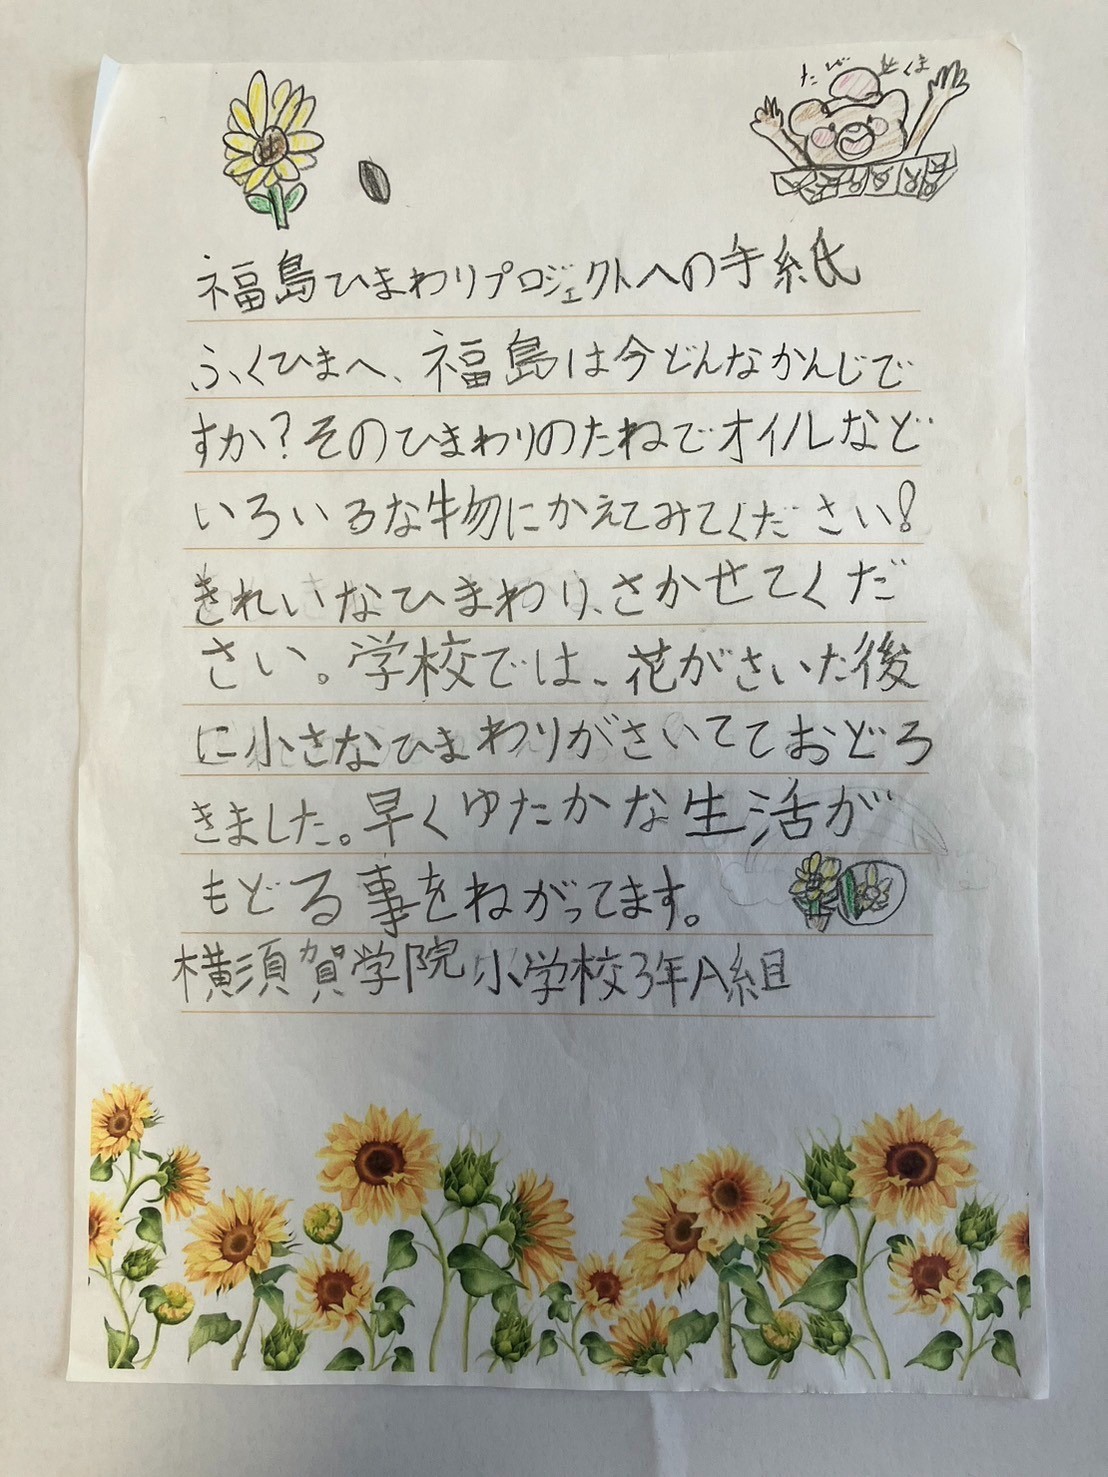 福島ひまわりプロジェクトへの手紙
ふくひまへ、福島は今どんなかんじで
すか?そのひまわりのたねでオイルなど
いろいろな物にかえてみてください!
きれいなひまわり、さかせてくだ
さい。学校では、花がさいた後
に小さなひまわりがさいてておどろ
きました。早くゆたかな生活が
もどる事をねがってます。
横須賀学院小学校3年A組